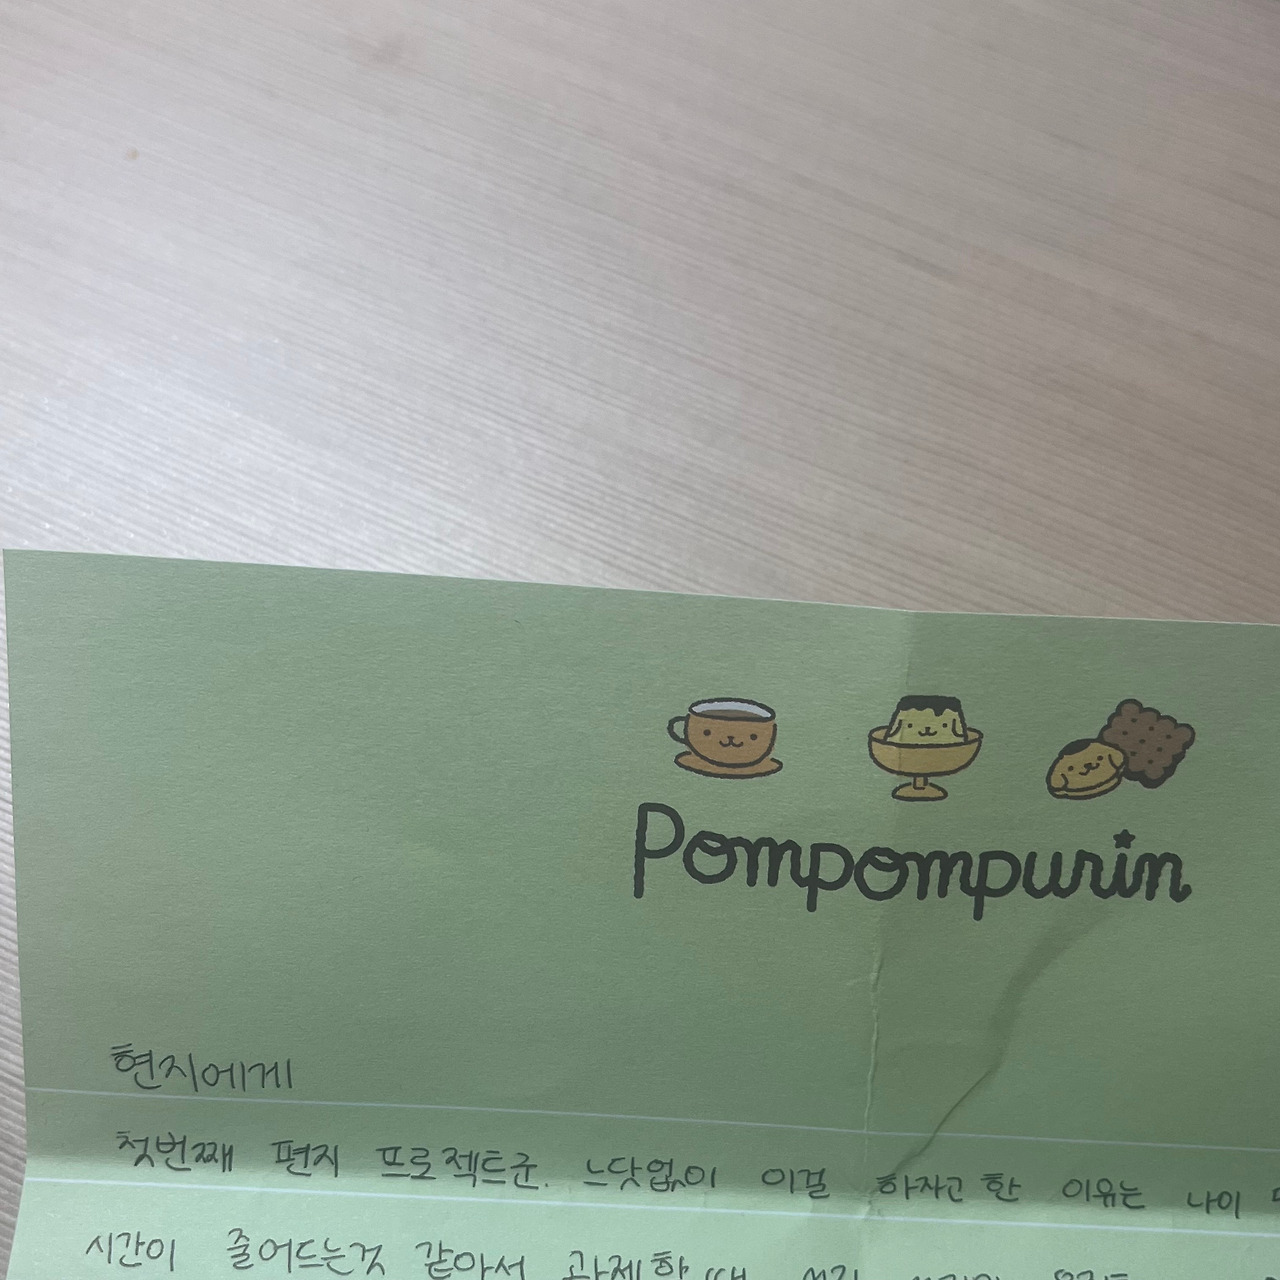 Pompompurin
현지에게
첫번째 편지 프로젝트군. 느닷없이 이걸 하자고 한 이유는 나이
시간이 줄어드는것 같아서 과제할 때